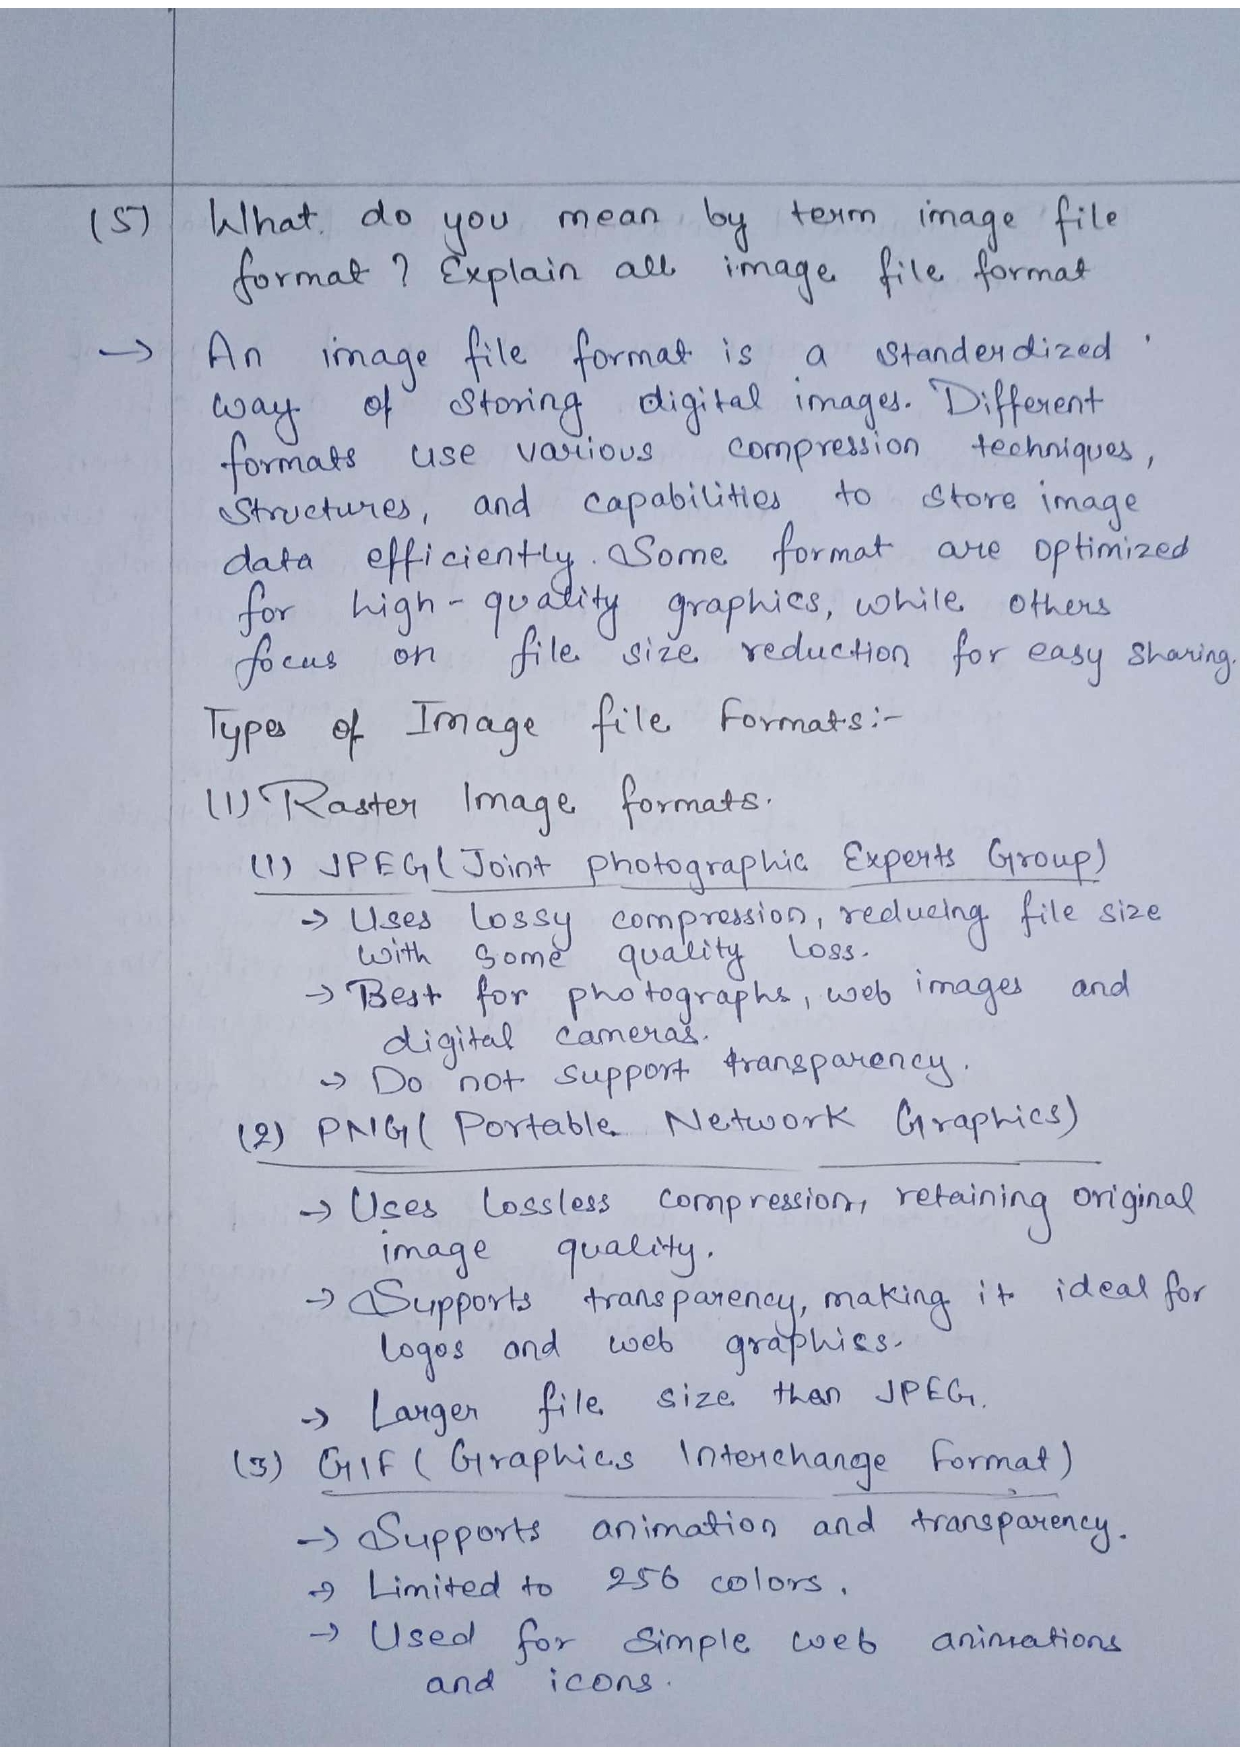 (5) What do you mean by term image file
format ? Explain all image file format
→ An image file format is a standerdized
way of storing digital images. Different
formats use various compression techniques,
structures, and capabilities to store image
data efficiently. Some format are optimized
for high-quality graphics, while others
focus on file size reduction for easy sharing.
Types of Image file Formats:-
(1) Raster Image formats.
(1) JPEG (Joint photographic Experts Group)
→ Uses lossy compression, reducing file size
with some quality loss.
→ Best for photographs, web images and
digital cameras.
→ Do not support transparency.
(2) PNG (Portable Network Graphics)
→ Uses lossless compression, retaining original
image quality.
→ Supports transparency, making it ideal for
logos and web graphics.
→ Larger file size than JPEG.
(3) GIF (Graphics Interchange Format)
→ Supports animation and transparency.
→ Limited to 256 colors.
→ Used for simple web animations
and icons.